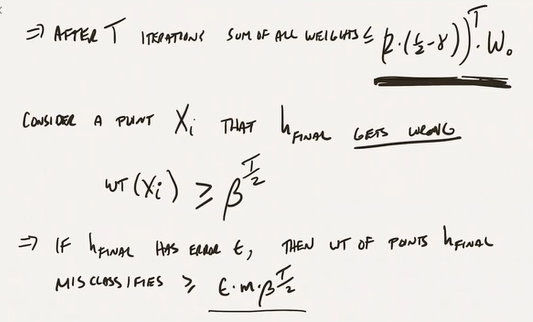 ⇒ AFTER T ITERATIONS SUM OF ALL WEIGHTS ≤ (2·(½-γ))^T·W₀
CONSIDER A POINT Xᵢ THAT h_FINAL GETS WRONG
WT(Xᵢ) ≥ β^(T/2)
⇒ IF h_FINAL HAS ERROR ε, THEN WT OF POINTS h_FINAL
MISCLASSIFIES ≥ ε·m·β^(T/2)